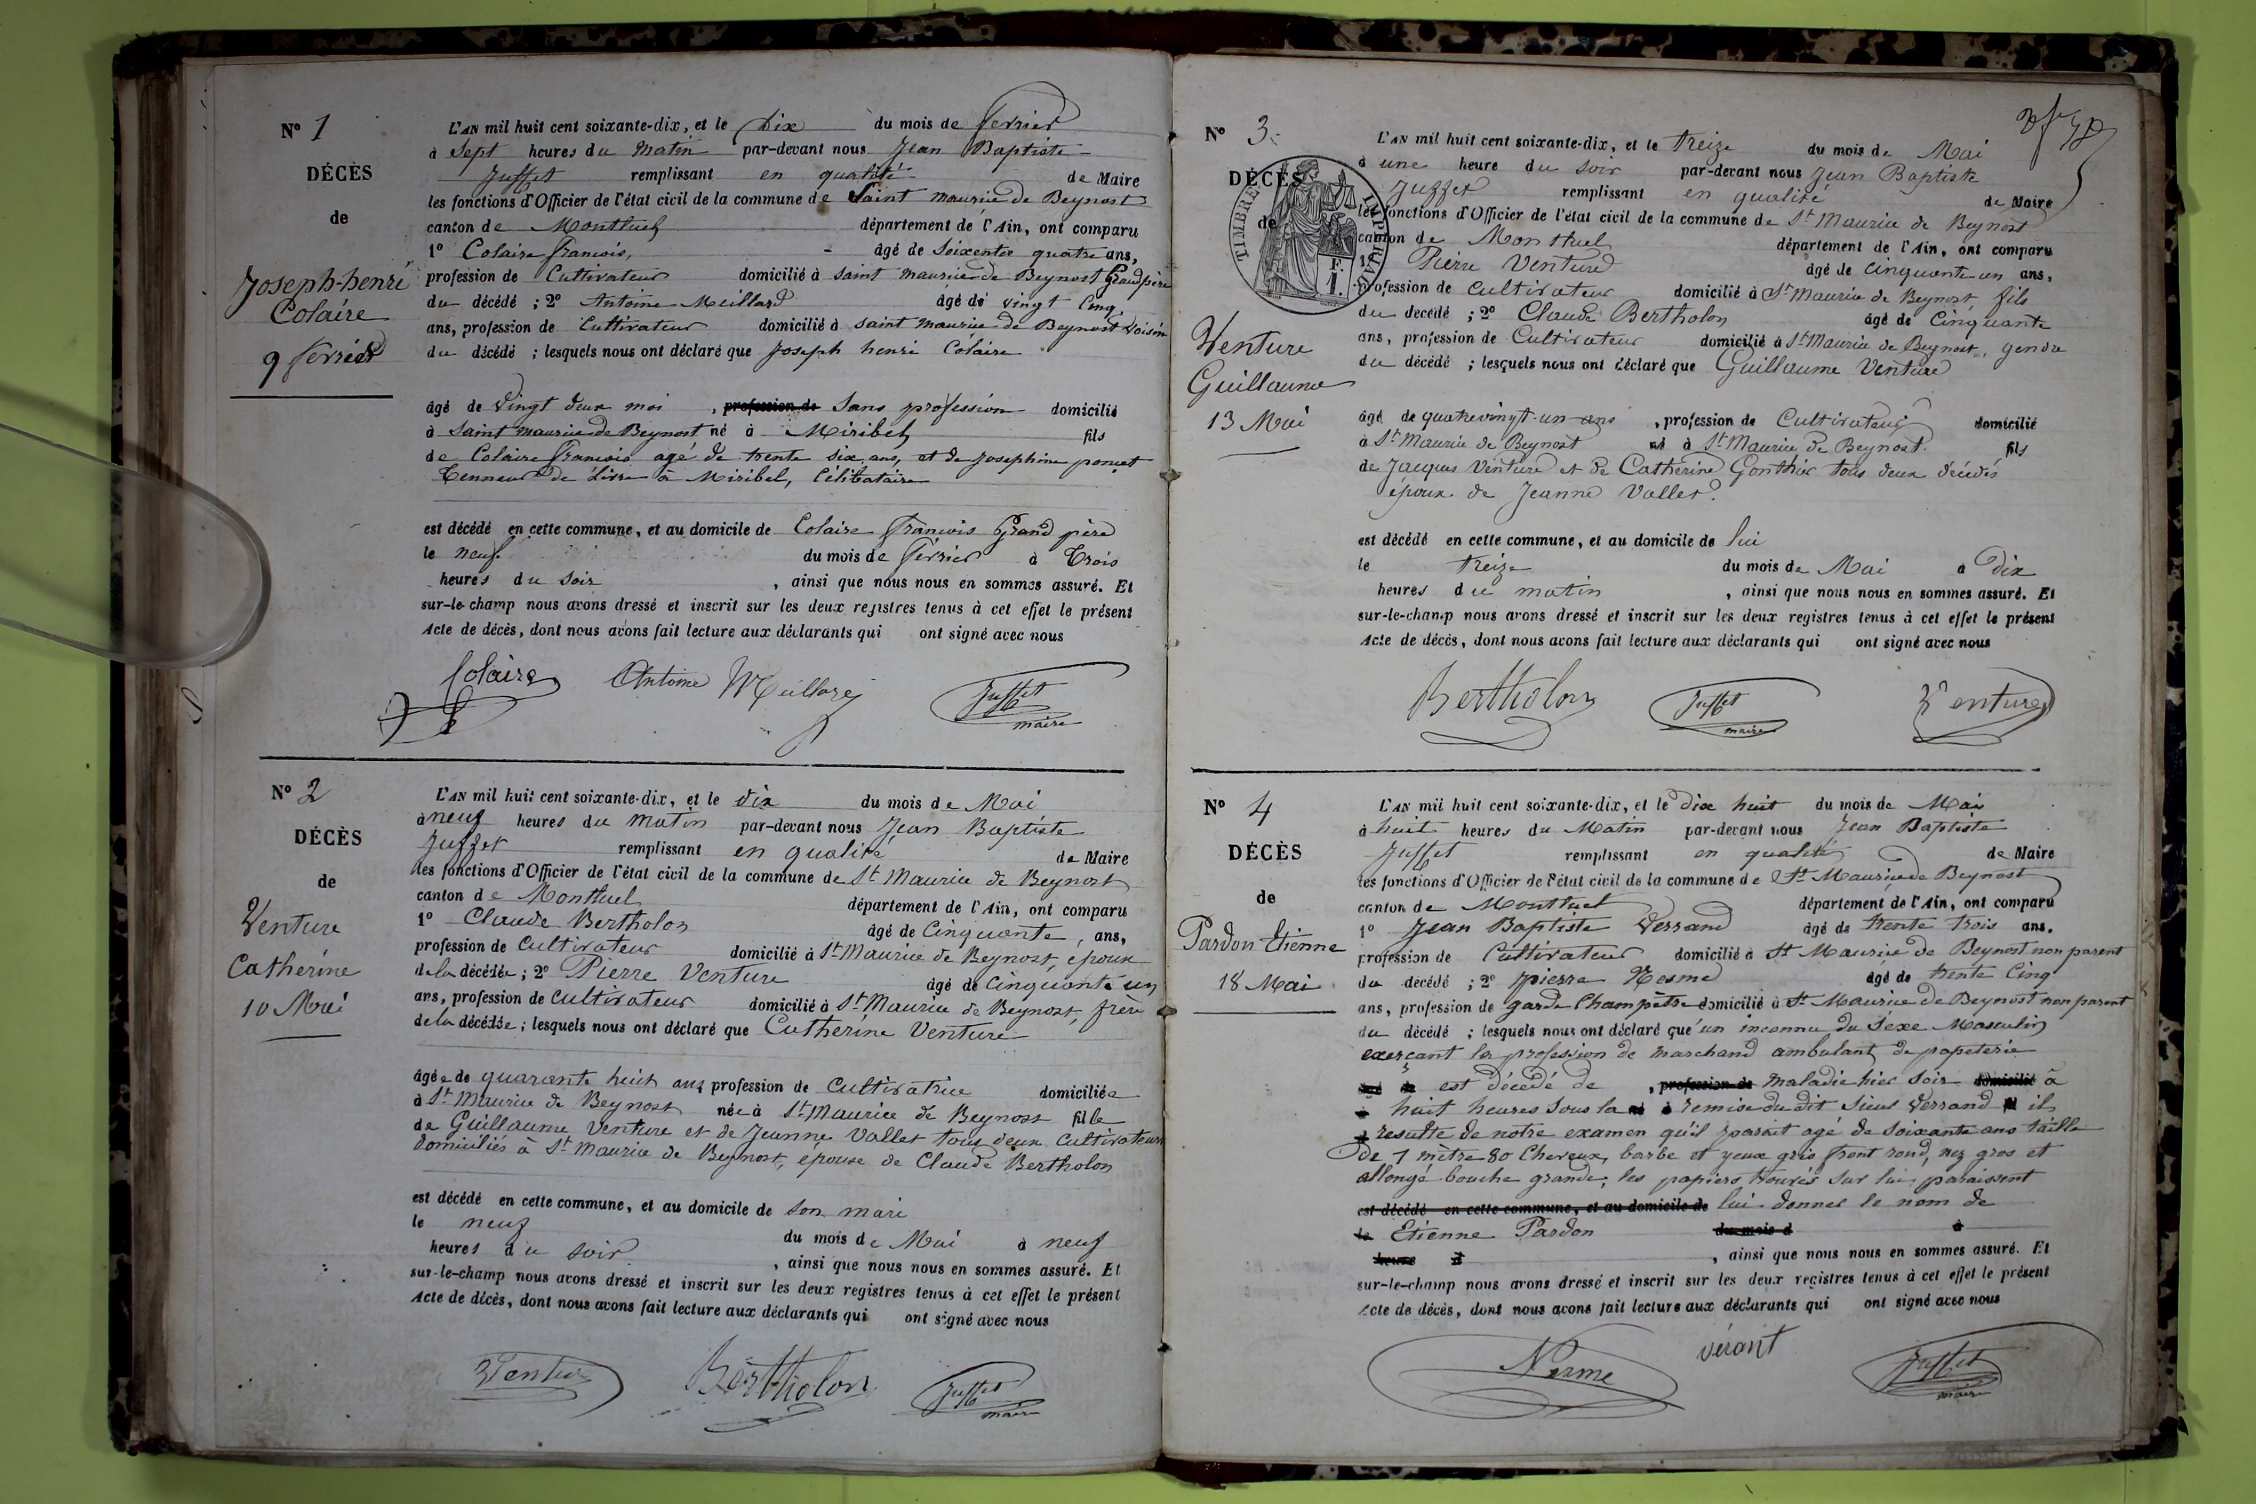 N° 1
DÉCÈS
de
Joseph-henri
Colaire
9 fevrier
L'AN mil huit cent soixante-dix, et le Dix du mois de fevrier
à Sept heures du Matin par-devant nous Jean Baptiste
Juffet remplissant en qualité de Maire
les fonctions d'Officier de l'état civil de la commune de Saint maurice de Beynost
canton de Montluel département de l'Ain, ont comparu
1° Colaire francois, âgé de Soixente quatre ans,
profession de Cultivateur domicilié à saint maurice de Beynost Grand père
du décédé ; 2° Antoine Meillard âgé de vingt Cinq
ans, profession de Cultivateur domicilié à saint maurice de Beynost Voisin
du décédé ; lesquels nous ont déclaré que Joseph henri Colaire
âgé de vingt deux moi , profession de Sans profession domicilié
à Saint maurice de Beynost né à Miribel fils
de Colaire francois agé de trente six ans, et de Josephine poncet
Tenneur de Livre à Miribel, Célibataire
est décédé en cette commune, et au domicile de Colaire francois Grand père
le neuf du mois de fevrier à Trois
heures du soir , ainsi que nous nous en sommes assuré. Et
sur-le-champ nous avons dressé et inscrit sur les deux registres tenus à cet effet le présent
Acte de décès, dont nous avons fait lecture aux déclarants qui ont signé avec nous
Colaire Antoine Meillard Juffet
maire
N° 2
DÉCÈS
de
Venture
Catherine
10 Mai
L'AN mil huit cent soixante-dix, et le dix du mois de Mai
à neuf heures du matin par-devant nous Jean Baptiste
Juffet remplissant en qualité de Maire
les fonctions d'Officier de l'état civil de la commune de St Maurice de Beynost
canton de Montluel département de l'Ain, ont comparu
1° Claude Bertholon âgé de Cinquante, ans,
profession de Cultivateur domicilié à St Maurice de Beynost, époux
de la décédée ; 2° Pierre Venture âgé de Cinquante un
ans, profession de Cultivateur domicilié à St Maurice de Beynost, frère
de la décédée ; lesquels nous ont déclaré que Catherine Venture
âgée de quarante huit ans profession de Cultivatrice domiciliée
à St Maurice de Beynost née à St Maurice de Beynost fille
de Guillaume Venture et de Jeanne Vallet tous deux Cultivateurs
domiciliés à St Maurice de Beynost, épouse de Claude Bertholon
est décédé en cette commune, et au domicile de son mari
le neuf du mois de Mai à neuf
heures du soir , ainsi que nous nous en sommes assuré. Et
sur-le-champ nous avons dressé et inscrit sur les deux registres tenus à cet effet le présent
Acte de décès, dont nous avons fait lecture aux déclarants qui ont signé avec nous
Venture Bertholon Juffet
maire
N° 3
DÉCÈS
de
TIMBRE IMPÉRIAL
1 F.
Venture
Guillaume
13 Mai
L'AN mil huit cent soixante-dix, et le treize du mois de Mai
à une heure du soir par-devant nous Jean Baptiste
Juffet remplissant en qualité de Maire
les fonctions d'Officier de l'état civil de la commune de St Maurice de Beynost
canton de Montluel département de l'Ain, ont comparu
1° Pierre Venture âgé de cinquante un ans,
profession de Cultivateur domicilié à St Maurice de Beynost, fils
du décédé ; 2° Claude Bertholon âgé de Cinquante
ans, profession de Cultivateur domicilié à St Maurice de Beynost, gendre
du décédé ; lesquels nous ont déclaré que Guillaume Venture
âgé de quatrevingt-un ans , profession de Cultivateur domicilié
à St Maurice de Beynost né à St Maurice de Beynost fils
de Jacques Venture et de Catherine Gonthier tous deux décédés
époux de Jeanne Vallet.
est décédé en cette commune, et au domicile de lui
le treize du mois de Mai à dix
heures du matin , ainsi que nous nous en sommes assuré. Et
sur-le-champ nous avons dressé et inscrit sur les deux registres tenus à cet effet le présent
Acte de décès, dont nous avons fait lecture aux déclarants qui ont signé avec nous
Bertholon Juffet Venture
maire
N° 4
DÉCÈS
de
Pardon Etienne
18 Mai
L'AN mil huit cent soixante-dix, et le dix huit du mois de Mai
à huit heures du Matin par-devant nous Jean Baptiste
Juffet remplissant en qualité de Maire
les fonctions d'Officier de l'état civil de la commune de St Maurice de Beynost
canton de Montluel département de l'Ain, ont comparu
1° Jean Baptiste Verrand âgé de trente trois ans.
profession de Cultivateur domicilié à St Maurice de Beynost non parent
du décédé ; 2° pierre Nesme âgé de trente Cinq
ans, profession de garde Champêtre domicilié à St Maurice de Beynost non parent
du décédé ; lesquels nous ont déclaré que un inconnu du Sexe Masculin
exerçant la profession de marchand ambulant de papeterie
est décédé de , profession de maladie hier soir domicilié à
huit heures sous la remise du dit sieur Verrand il
résulte de notre examen qu'il parait agé de soixante ans taille
de 1 mètre 80 Cheveux, barbe et yeux gris front rond, nez gros et
allongé bouche grande, les papiers trouvés sur lui paraissent
est décédé en cette commune, et au domicile de lui donner le nom de
le Etienne Pardon du mois d à
heure d , ainsi que nous nous en sommes assuré. Et
sur-le-champ nous avons dressé et inscrit sur les deux registres tenus à cet effet le présent
Acte de décès, dont nous avons fait lecture aux déclarants qui ont signé avec nous
Nesme vérant Juffet
maire